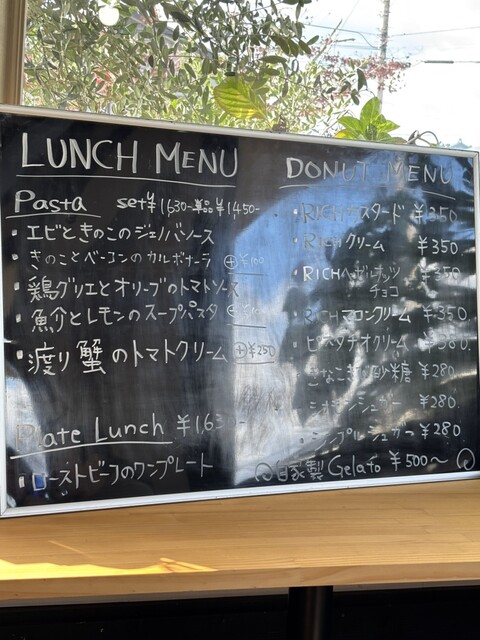 LUNCH MENU
Pasta set¥1630- 単品¥1450-
・エビときのこのジェノバソース
・きのことベーコンのカルボナーラ ⊕¥100
・鶏グリエとオリーブのトマトソース
・魚介とレモンのスープパスタ
・渡り蟹のトマトクリーム ⊕¥250
Plate Lunch ¥1,630-
・ローストビーフのワンプレート
DONUT MENU
・RICHカスタード ¥350
・RICHクリーム ¥350.
・RICHヘーゼルナッツ チョコ ¥350
・RICHマロンクリーム ¥350
・ピスタチオクリーム ¥380
・きなこ 砂糖 ¥280
シュガー ¥280.
・シンプルシュガー ¥280
自家製 Gelato ¥500〜